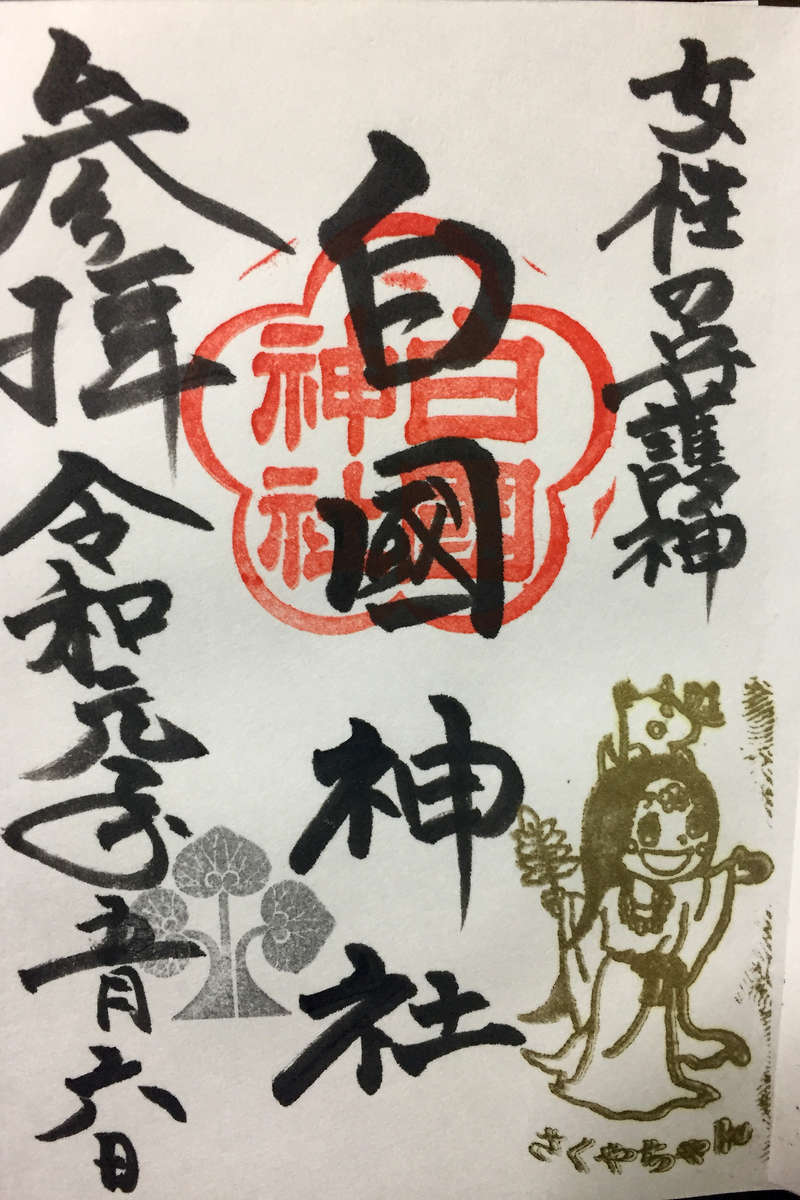 女性の守護神
白國神社
白國
神社
参拝
令和元年五月六日
さくやちゃん